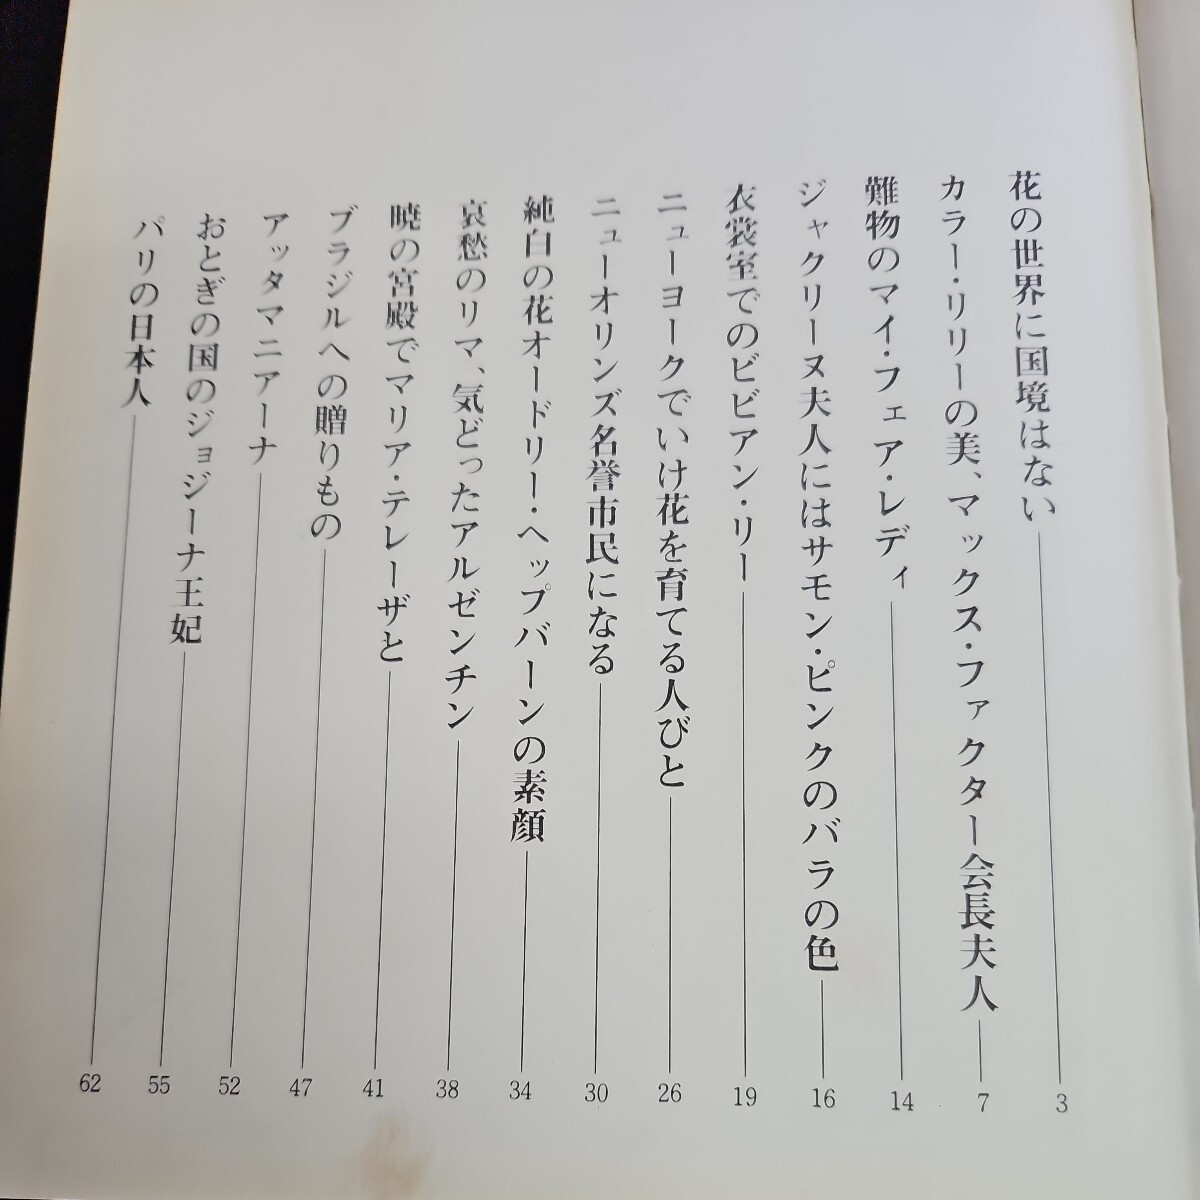 花の世界に国境はない 3
カラー・リリーの美、マックス・ファクター会長夫人 7
難物のマイ・フェア・レディ 14
ジャクリーヌ夫人にはサモン・ピンクのバラの色 16
衣裳室でのビビアン・リー 19
ニューヨークでいけ花を育てる人びと 26
ニューオリンズ名誉市民になる 30
純白の花オードリー・ヘップバーンの素顔 34
哀愁のリマ、気どったアルゼンチン 38
暁の宮殿でマリア・テレーザと 41
ブラジルへの贈りもの 47
アッタマニアーナ 52
おとぎの国のジョジーナ王妃 55
パリの日本人 62